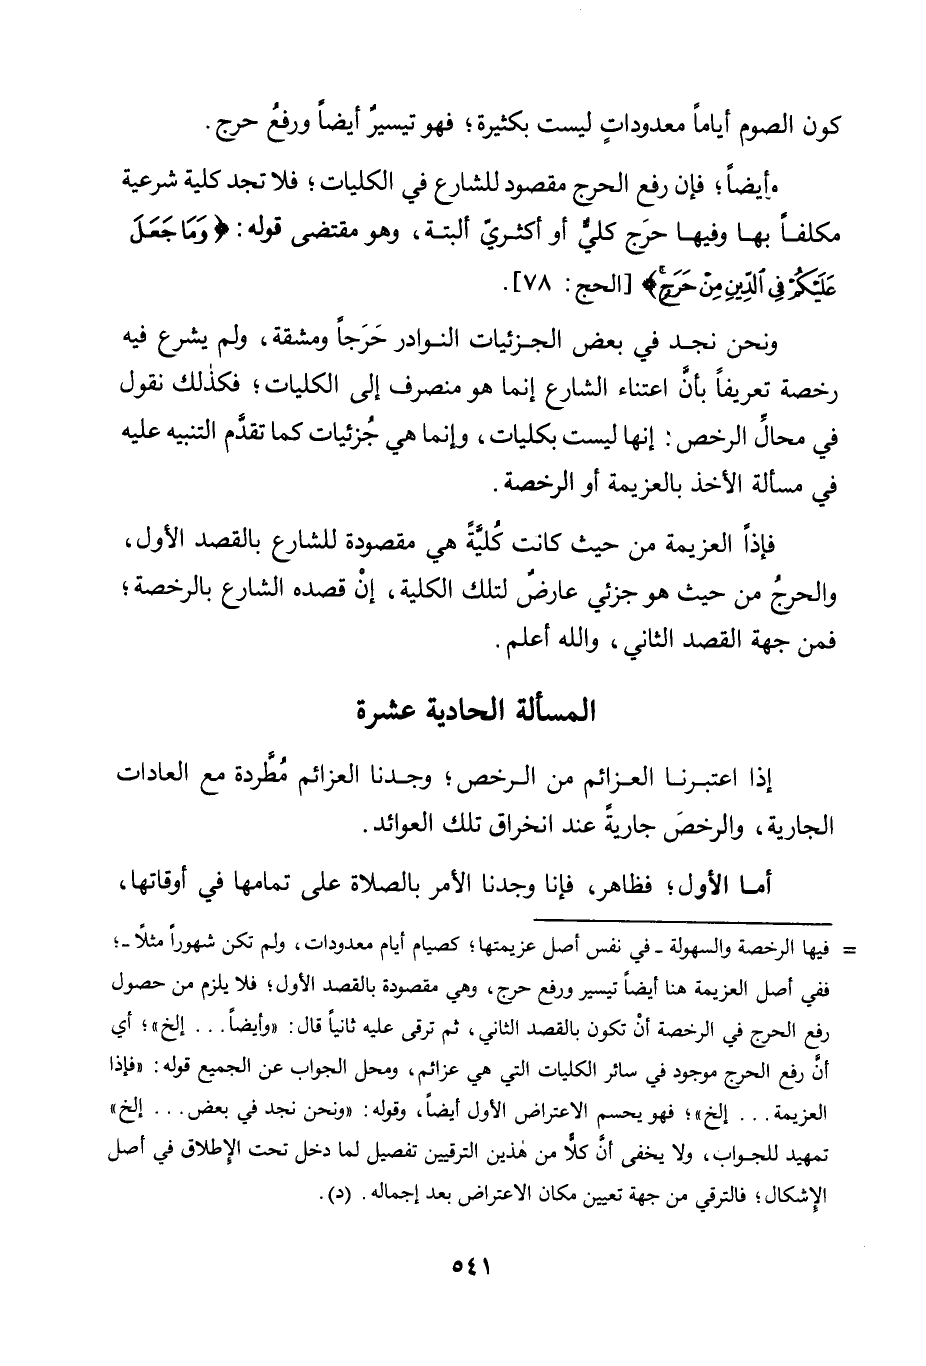 كون الصوم أياماً معدوداتٍ ليست بكثيرة؛ فهو تيسيرٌ أيضاً ورفعُ حرج.
وأيضاً؛ فإن رفع الحرج مقصود للشارع في الكليات؛ فلا تجد كلية شرعية
مكلفاً بها وفيها حرَج كليٌّ أو أكثريّ ألبتة، وهو مقتضى قوله: ﴿وَمَا جَعَلَ
عَلَيْكُمْ فِي ٱلدِّينِ مِنْ حَرَجٍ﴾ [الحج: ٧٨].
ونحن نجد في بعض الجزئيات النوادر حَرَجاً ومشقة، ولم يشرع فيه
رخصة تعريفاً بأنَّ اعتناء الشارع إنما هو منصرف إلى الكليات؛ فكذٰلك نقول
في محالِّ الرخص: إنها ليست بكليات، وإنما هي جُزئيات كما تقدَّم التنبيه عليه
في مسألة الأخذ بالعزيمة أو الرخصة.
فإذاً العزيمة من حيث كانت كُليَّةً هي مقصودة للشارع بالقصد الأول،
والحرجُ من حيث هو جزئي عارضٌ لتلك الكلية، إنْ قصده الشارع بالرخصة؛
فمن جهة القصد الثاني، والله أعلم.
المسألة الحادية عشرة
إذا اعتبرنا العزائم من الرخص؛ وجدنا العزائم مُطَّردة مع العادات
الجارية، والرخصَ جاريةً عند انخراق تلك العوائد.
أما الأول؛ فظاهر، فإنا وجدنا الأمر بالصلاة على تمامها في أوقاتها،
= فيها الرخصة والسهولة ـ في نفس أصل عزيمتها؛ كصيام أيام معدودات، ولم تكن شهوراً مثلاً ـ؛
ففي أصل العزيمة هنا أيضاً تيسير ورفع حرج، وهي مقصودة بالقصد الأول؛ فلا يلزم من حصول
رفع الحرج في الرخصة أنْ تكون بالقصد الثاني، ثم ترقى عليه ثانياً قال: «وأيضاً... إلخ»؛ أي
أنَّ رفع الحرج موجود في سائر الكليات التي هي عزائم، ومحل الجواب عن الجميع قوله: «فإذا
العزيمة... إلخ»؛ فهو يحسم الاعتراض الأول أيضاً، وقوله: «ونحن نجد في بعض... إلخ»
تمهيد للجواب، ولا يخفى أنَّ كلاًّ من هٰذين الترقيين تفصيل لما دخل تحت الإطلاق في أصل
الإشكال؛ فالترقي من جهة تعيين مكان الاعتراض بعد إجماله. (د).
٥٤١